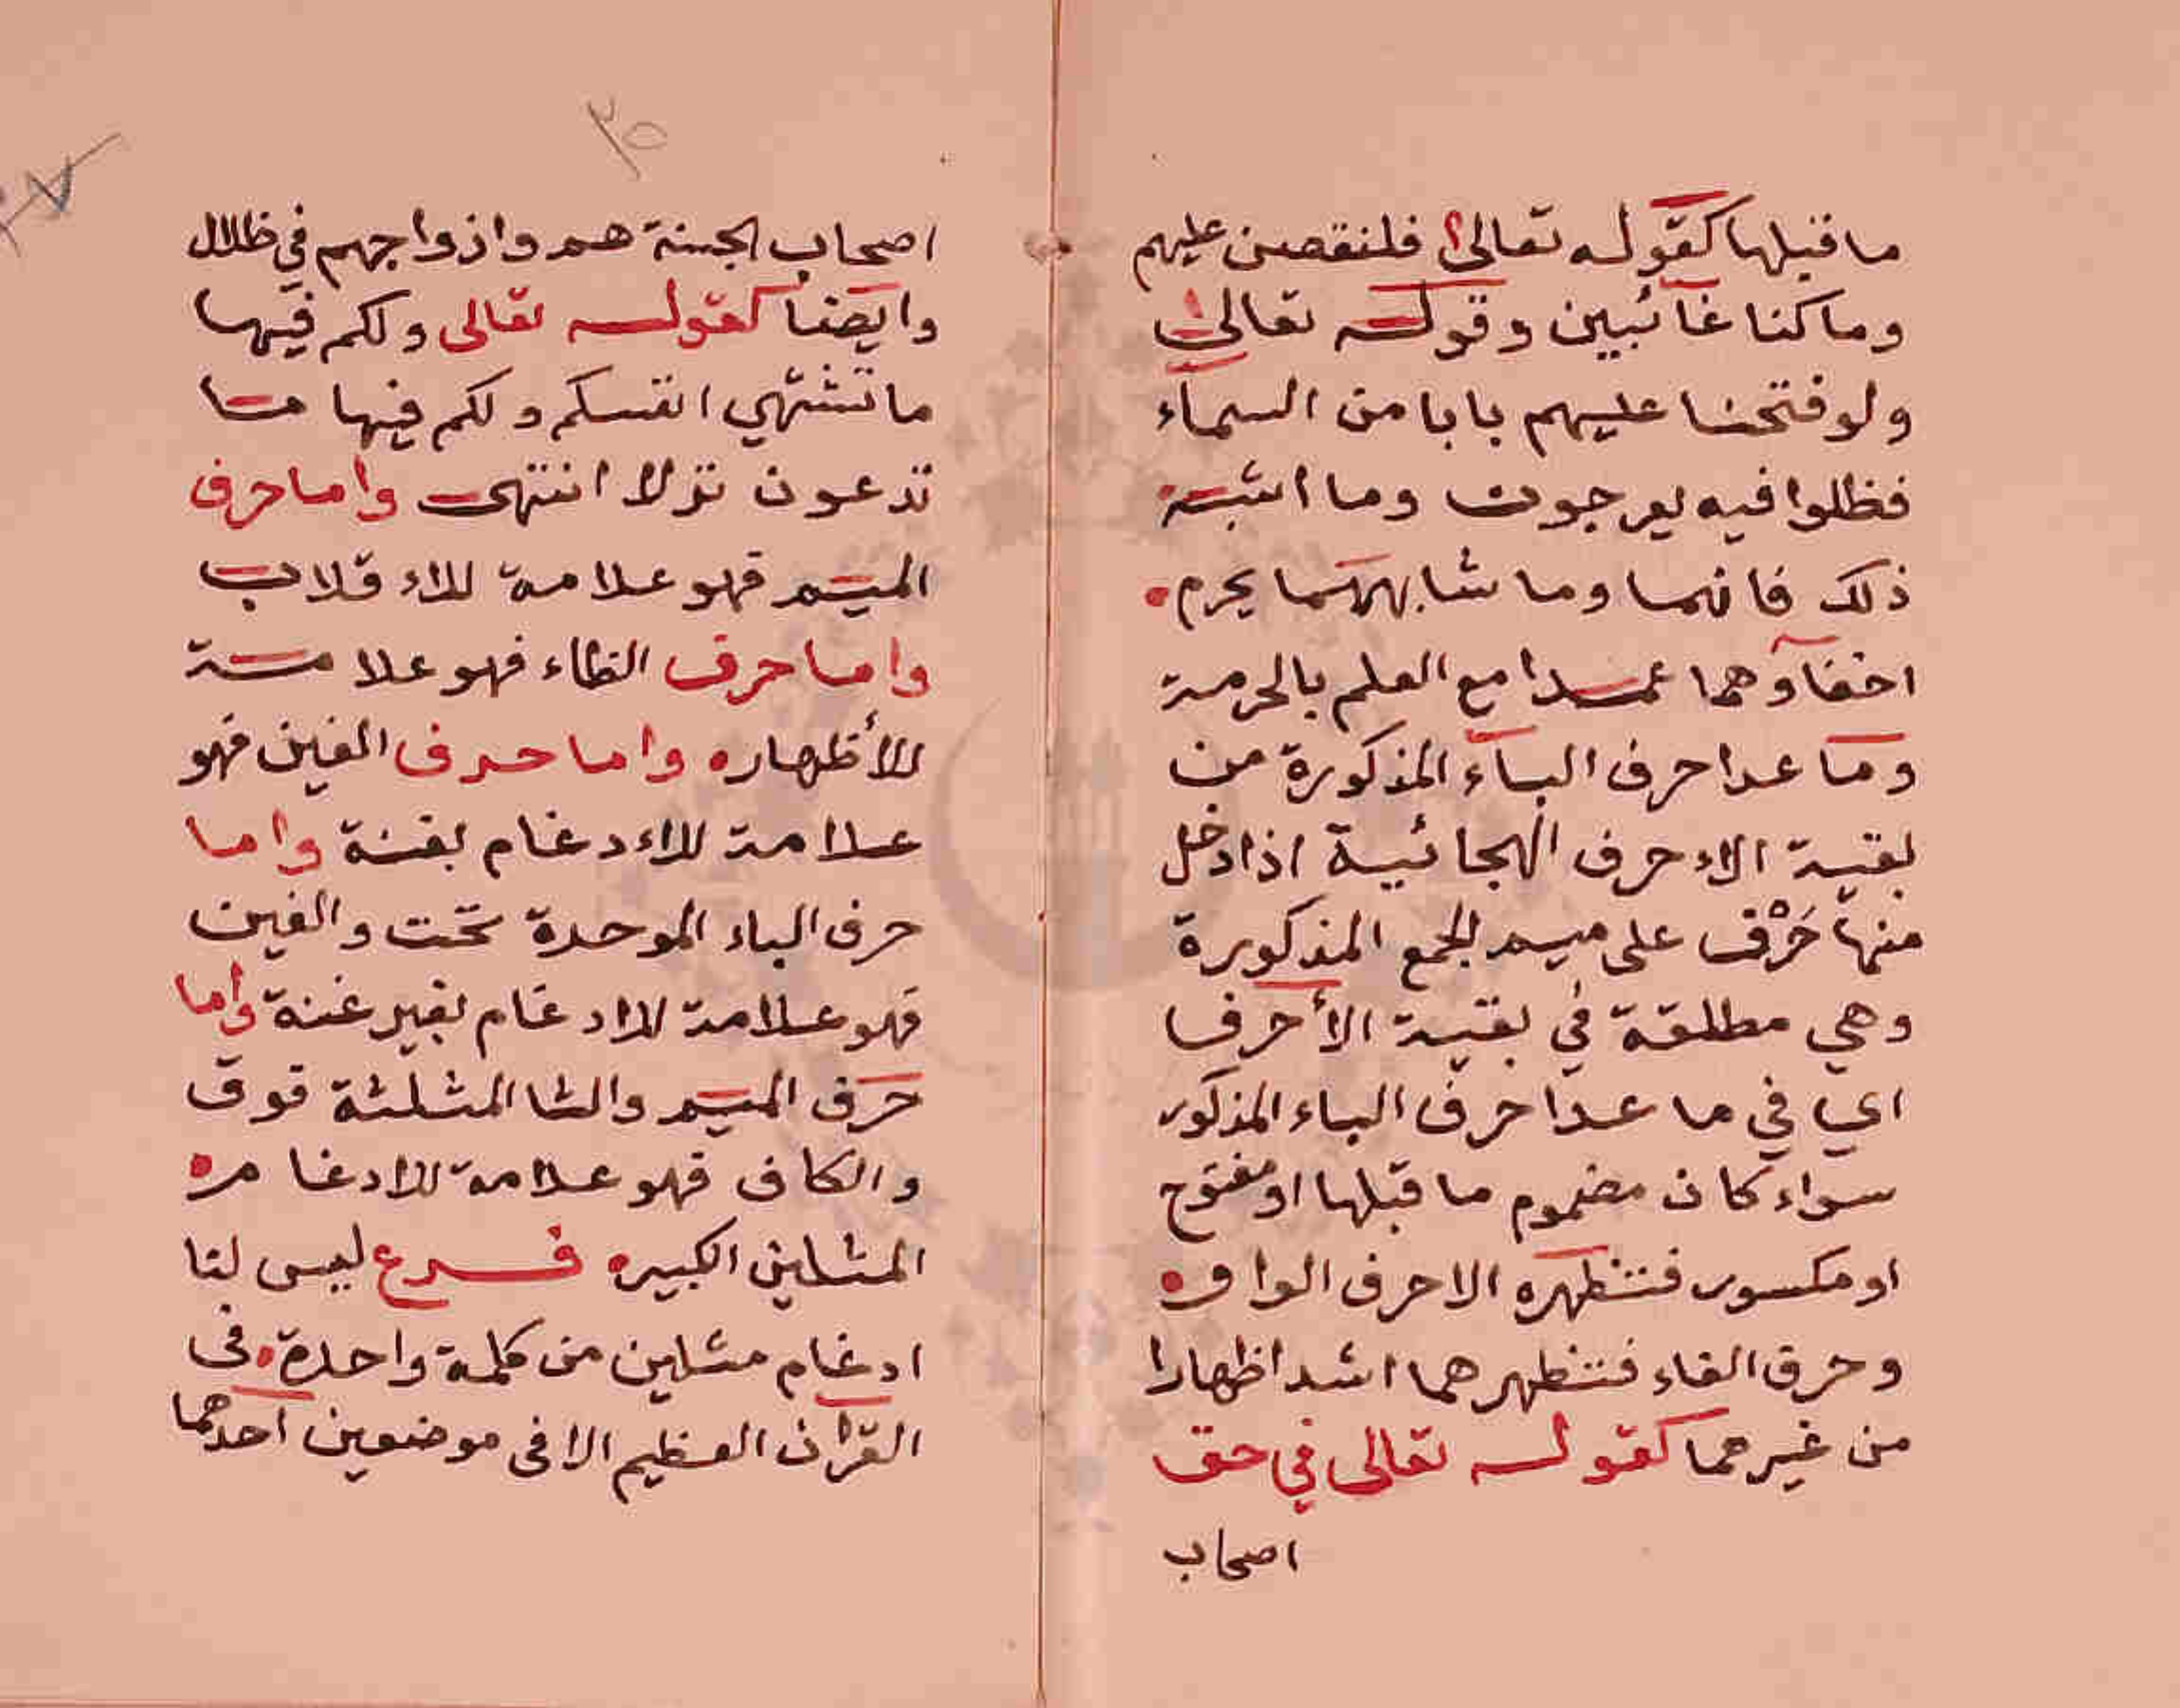 ما قبلها كقوله تعالى فلنقصن عليهم
وما كنا غائبين وقوله تعالى
ولو فتحنا عليهم بابا من السماء
فظلوا فيه يعرجون وما اشبه
ذلك فانهما وما شابههما يحرم
اخفاؤهما عمدا مع العلم بالحرمة
وما عدا حرف الباء المذكورة من
بقية الاحرف الهجائية اذا دخل
منها حَرْف على ميم الجمع المذكورة
وهي مطلقة في بقية الأحرف
اي في ما عدا حرف الباء المذكور
سواء كان مضموم ما قبلها او مفتوح
او مكسور فتنظهره الاحرف الواو
وحرف الفاء فتنظهرهما اشد اظهارا
من غيرهما كقوله تعالى في حق
اصحاب
٣٥
اصحاب الجنة هم وازواجهم في ظلال
وايضا كقوله تعالى ولكم فيها
ما تشتهي انفسكم ولكم فيها ما
تدعون نزلا انتهى واما حرف
الميم فهو علامة للاقلاب
واما حرف الظاء فهو علامة
للأظهار واما حرف الغين فهو
علامة للادغام بغنة واما
حرف الباء الموحدة تحت والغين
فهو علامة للادغام بغير غنة واما
حرف الميم والثا المثلثة فوق
والكاف فهو علامة للادغام
المثلين الكبير فرع ليس لنا
ادغام مثلين من كلمة واحدة في
القرآن العظيم الا في موضعين احدهما